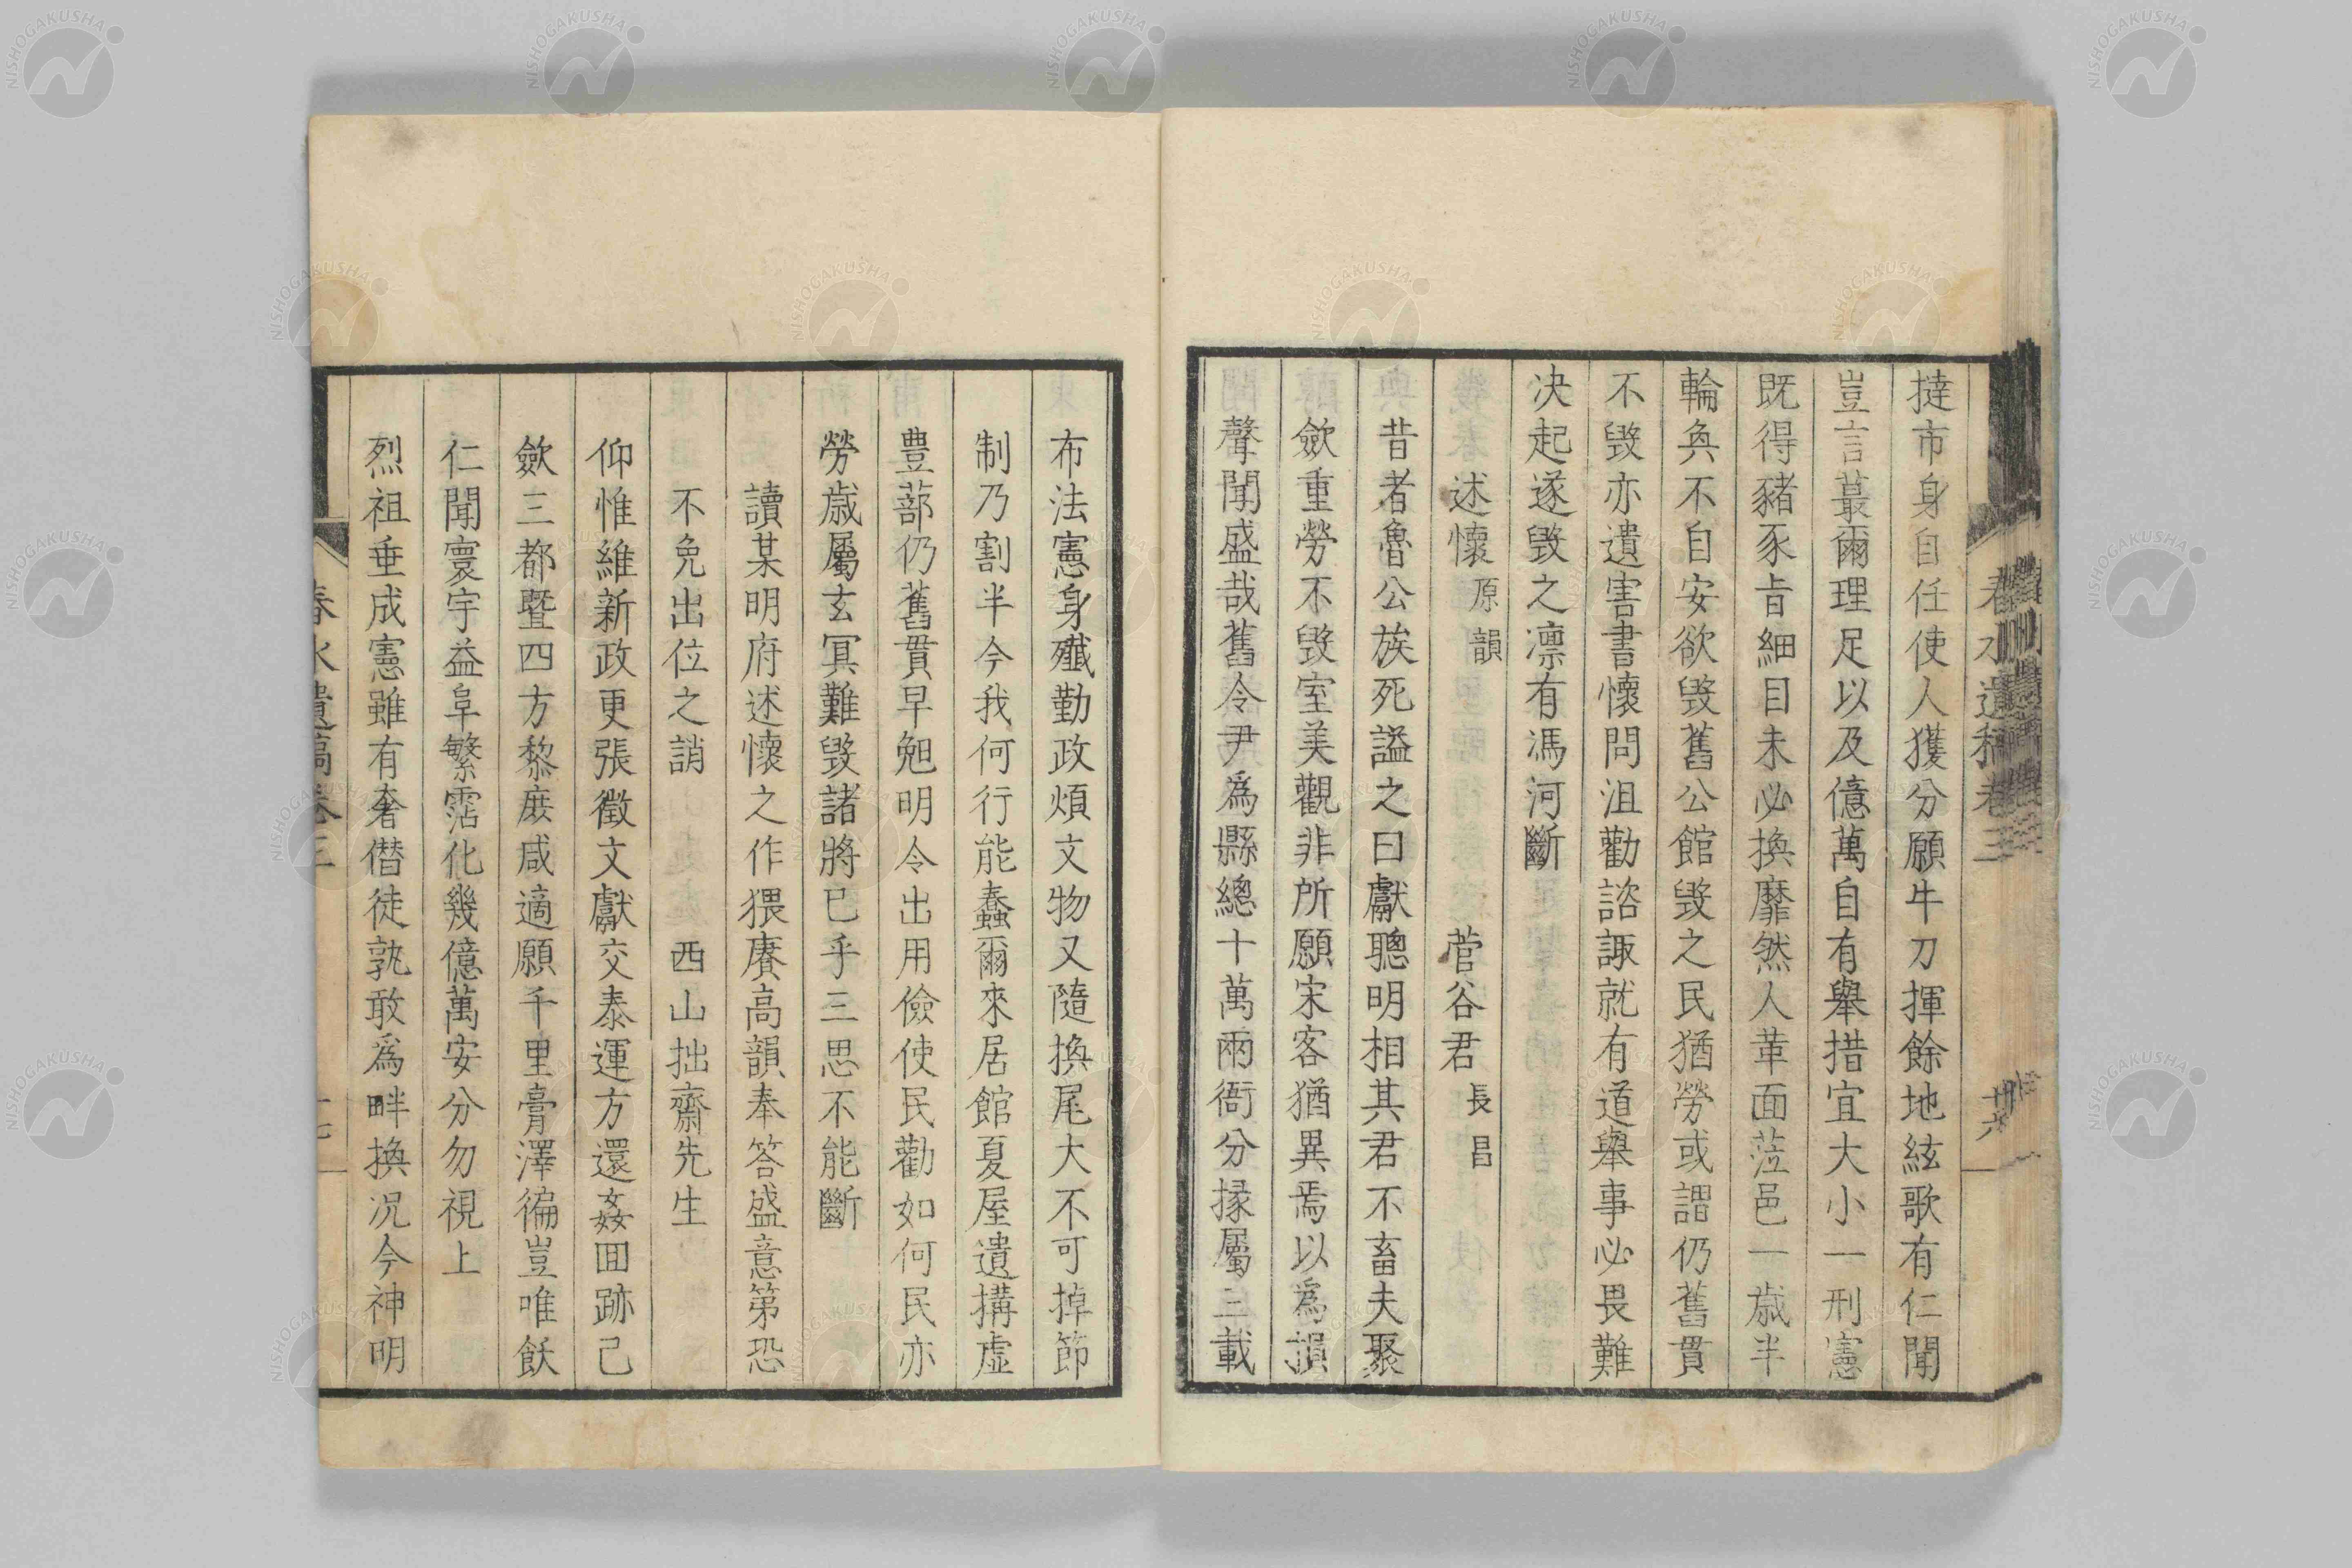 撻市身自任使人獲分願牛刀揮餘地絃歌有仁聞
豈言蕞爾理足以及億萬自有舉措宜大小一刑憲
既得豬豕㫖細目未必換靡然人革面莅邑一歳半
輪奐不自安欲毀舊公館毀之民猶勞或謂仍舊貫
不毀亦遺害書懷問沮勸諮諏就有道舉事必畏難
决起遂毀之凛有馮河斷
述懷 原韻 菅谷君 長昌
昔者魯公族死謚之曰獻聰明相其君不畜夫聚
歛重勞不毀室美觀非所願宋客猶異焉以爲損
聲聞盛哉舊令尹爲縣總十萬兩衙分掾屬三載
春水遺稿卷三
廿六
布法憲身殲勤政煩文物又隨換尾大不可掉節
制乃割半今我何行能蠢爾來居館夏屋遺搆虛
豊蔀仍舊貫早勉明令出用儉使民勸如何民亦
勞歳屬玄冥難毀諸將已乎三思不能斷
讀某明府述懷之作猥賡高韻奉答盛意第恐
不免出位之誚 西山拙齋先生
仰惟維新政更張徵文獻交泰運方還姦回跡已
歛三都曁四方黎庶咸適願千里膏澤徧豈唯飫
仁聞寰宇益阜繁霑化幾億萬安分勿視上
烈祖垂成憲雖有奢僭徒孰敢爲畔換况今神明
春水遺稿卷三